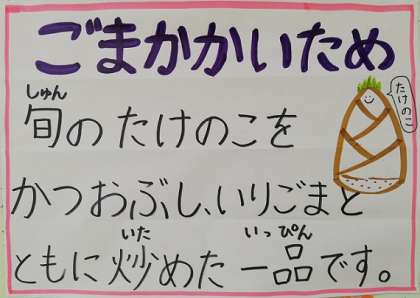 ごまかかいため
しゅん
旬のたけのこを
たけのこ
かつおぶし、いりごまと
いた いっぴん
ともに炒めた一品です。